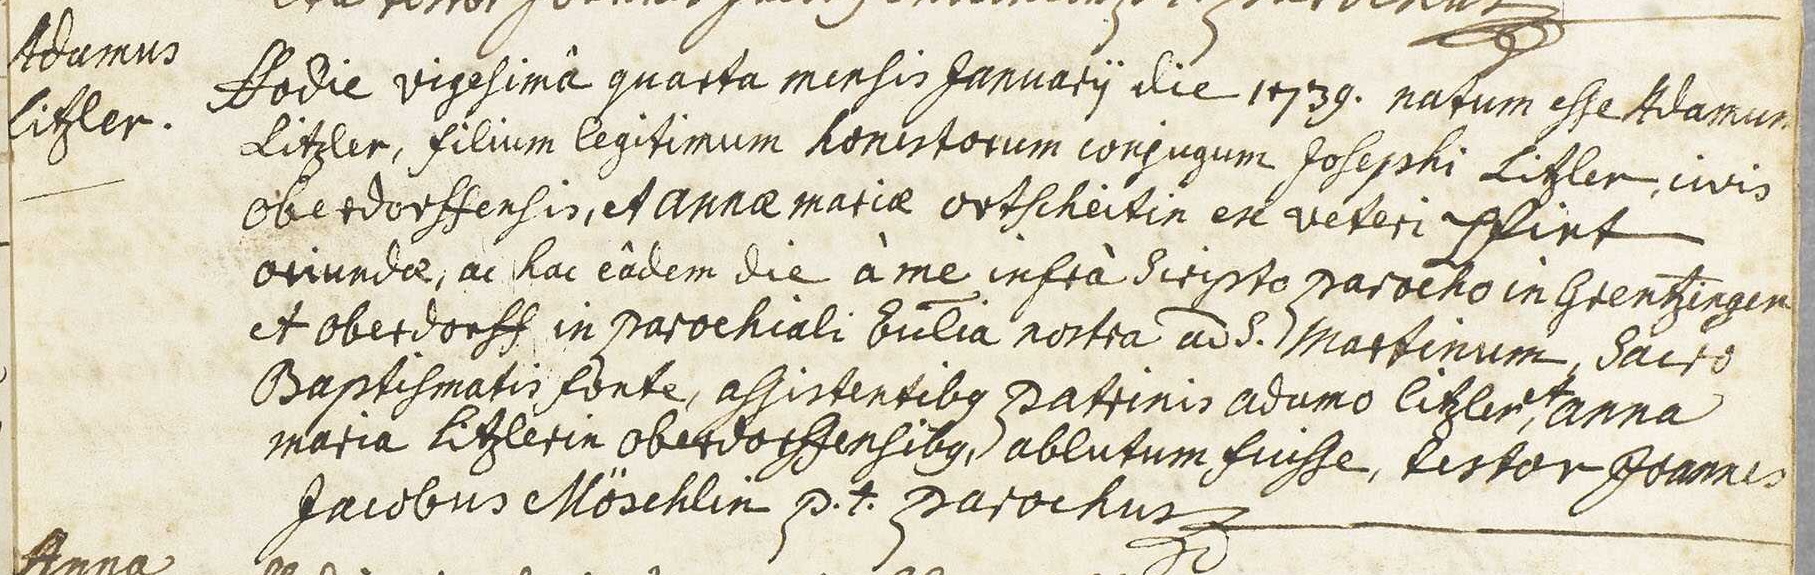 Adamus
Litzler.
Hodie vigesimâ quarta mensis Januarÿ die 1739. natum esse Adamum
Litzler, filium legitimum honestorum conjugum Josephi Litzler, civis
oberdorffensis, et annæ mariæ ortscheitin ex veteri Pfirt
oriundæ, ac hac eâdem die à me infrà Scripto parocho in Grentzingen
et oberdorff in parochiali Ecclia nostra ad S. Martinum, Sacro
Baptismatis fonte, assistentibq patrinis adamo litzler, et anna
maria litzlerin oberdorffensibq, ablutum fuisse, testor Joannes
Jacobus Möschlin p.t. parochus
Anna